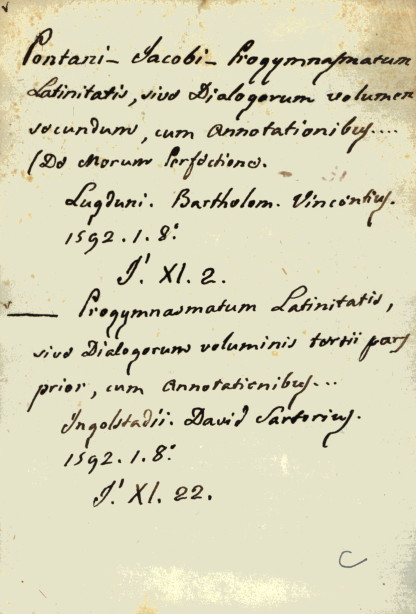 Pontani - Jacobi - Progymnasmatum
Latinitatis, sive Dialogorum volumen
secundum, cum Annotationibus....
(De Morum Perfectione.
Lugduni. Bartholom. Vincentius.
1592. 1. 8.º
J.' XI. 2.
— Progymnasmatum Latinitatis,
sive Dialogorum voluminis tertii pars
prior, cum Annotationibus...
Ingolstadii. David Sartorius.
1592. 1. 8.º
J.' XI. 22.
C